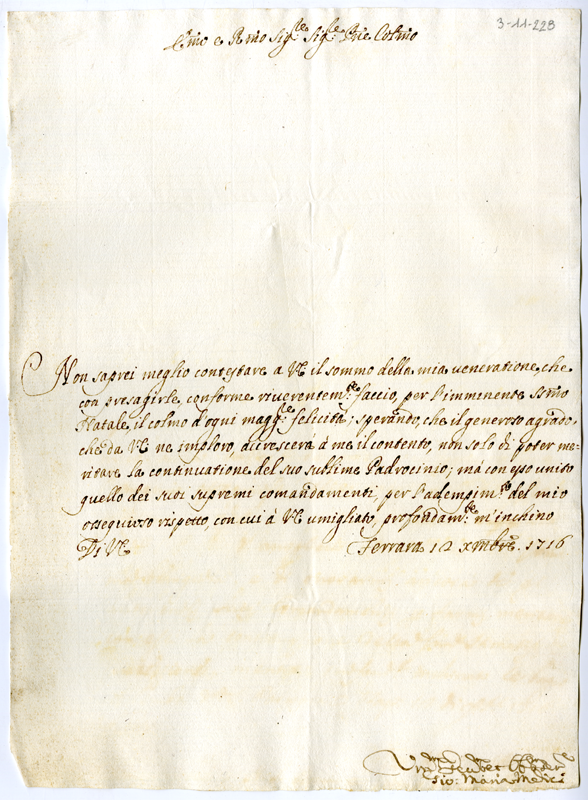 3-11-228
Emo e Rmo Sig.re Sig.re Pne Colmo
Non saprei meglio contestare a VE il sommo della mia veneratione, che
con presagirle, conforme riverentem.te faccio, per l'imminente Ssmo
Natale, il colmo d'ogni magg.re felicità; sperando, che il generoso agrado,
che da VE ne imploro, accrescerà à me il contento, non solo di poter me-
ritare la continuatione del suo sublime Padrocinio; mà con esso unito
quello dei suoi supremi comandamenti, per l'adempim.to del mio
ossequioso rispetto, con cui à VE umigliato, profondam.te m'inchino
Di VE Ferrara 12 xmbre. 1716
Gio: Maria